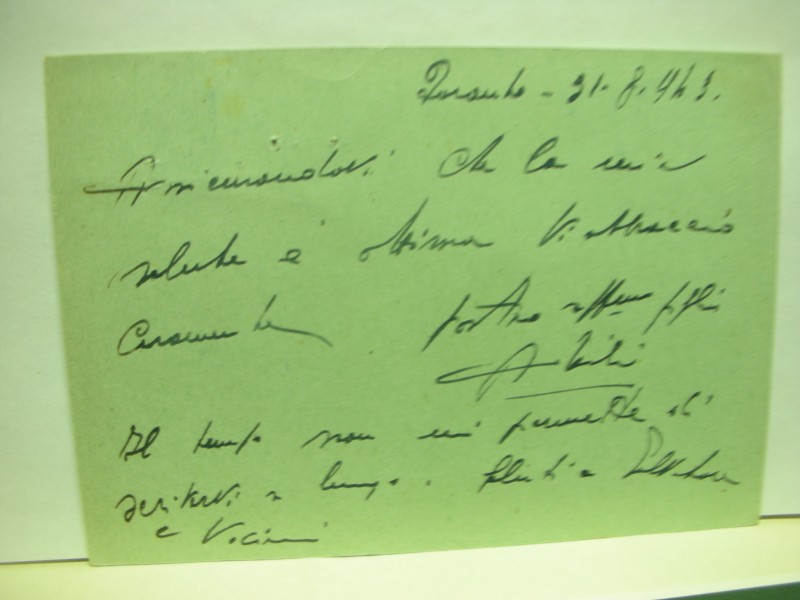 Taranto - 31-8-943.
Assicurandovi che la mia
salute è ottima Vi abbraccio
Caramente vostro aff.mo figlio
Il tempo non mi permette di
scrivervi a lungo. Saluti a
e Vicini